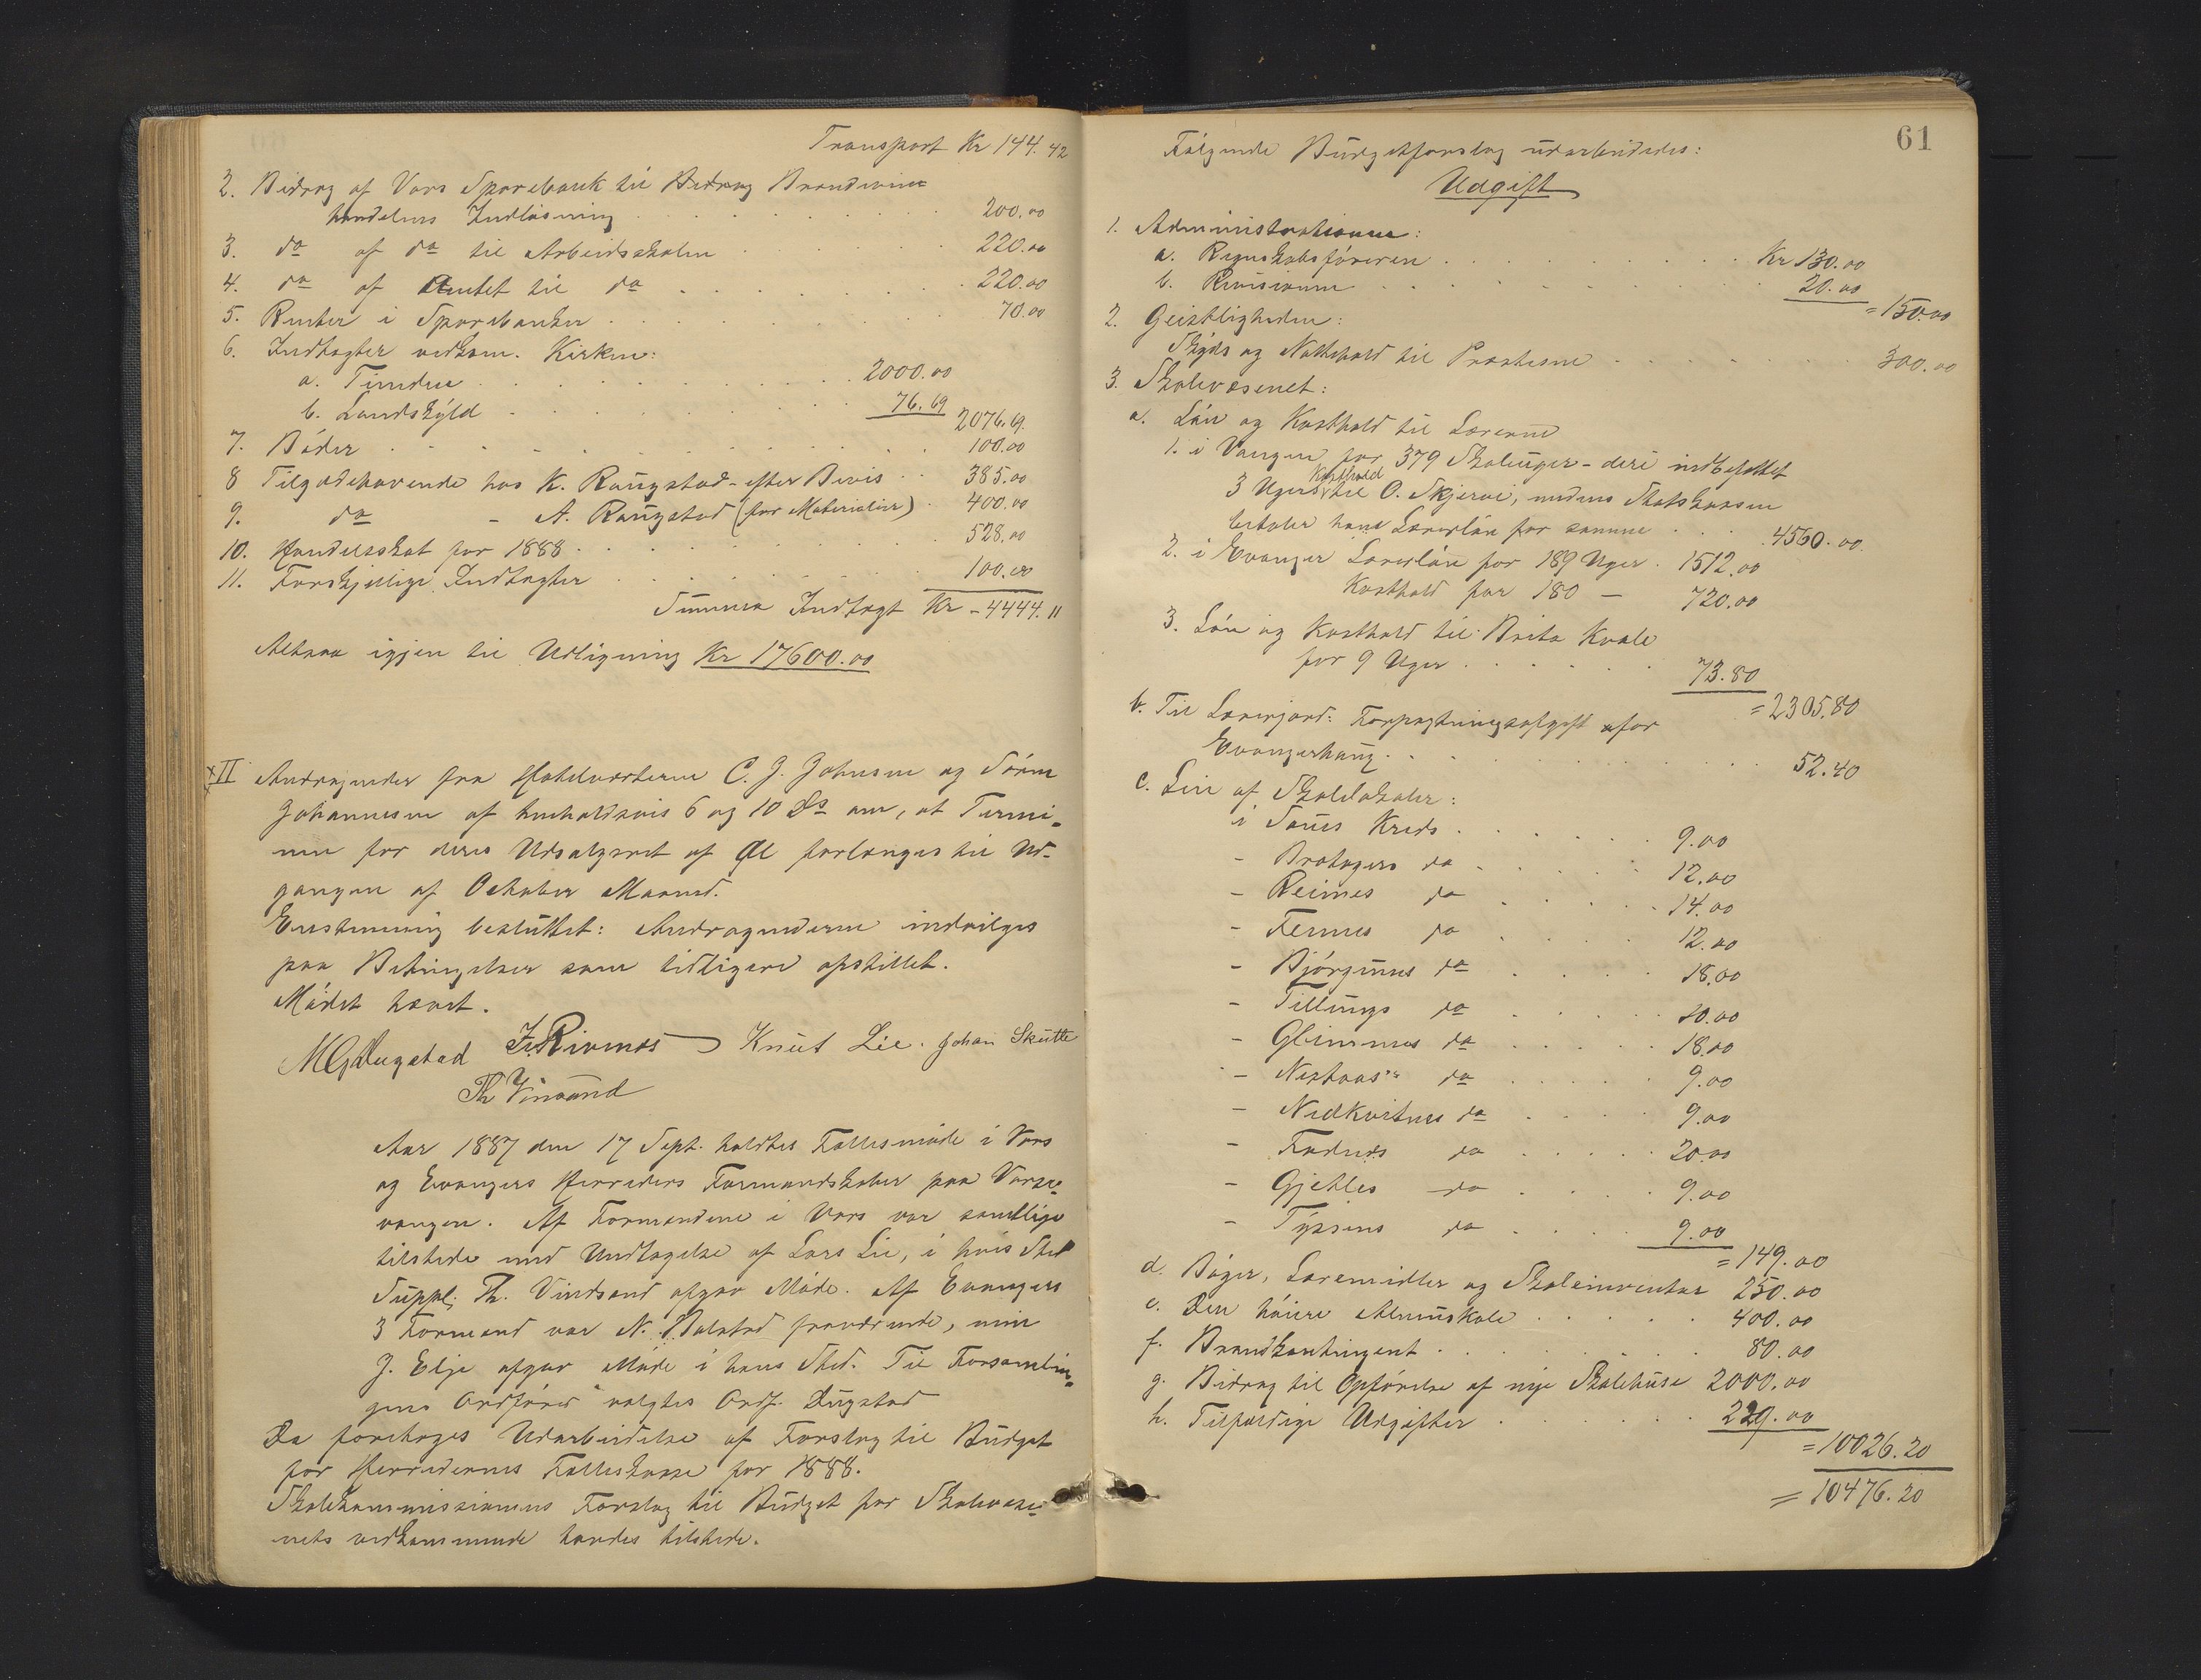 Transport Kr 144.42
2. Bidrag af Vors Sparebank til Bidrag Brændevins
handelens Indløsning 200.00
3. do af do til Arbeidsskolen 220.00
4. do af Amtet til do 220.00
5. Renter i Sparebanken 70.00
6. Indtægter vedkom. Kirken:
a. Tienden 2000.00
b. Landskyld 76.69
2076.69
7. Bøder 100.00
8 Tilgodehavende hos K. Rougstad - efter Bevis 385.00
9. do - A. Rougstad (for Materialier) 400.00
10. Handelsskat for 1888 528.00
11. Forskjellige Indtægter 100.00
Summa Indtægt Kr - 4444.11
Altsaa igjen til Udligning Kr 17600.00
XII Andragender fra Hotelværterne C. J. Johnsen og Søren
Johannesen af henholdsvis 6 og 10 Ds om, at Termi-
nen for deres Udsalgsret af Øl forlænges til Ud-
gangen af October Maaned.
Enstemmig besluttet: Andragenderne indvilges
paa Betingelser som tidligere opstillet.
Mødet hævet.
MGDugstad Rivenæs Knut Lie. Johan Skutle
Th Vinsand
Aar 1887 den 17 Sept. holdtes Fællesmøde i Vors
og Evangers Herreders Formandskaber paa Vosse-
vangen. Af Formændene i Vors var samtlige
tilstede med Undtagelse af Lars Lie, i hvis Sted
Suppl. Th. Vindsand afgav Møde. Af Evangers
3 Formænd var N. Bolstad fraværende, men
J. Elje afgav Møde i hans Sted. Til Forsamlin-
gens Ordfører valgtes Ordf. Dugstad
Da foretoges Udarbeidelse af Forslag til Budget
for Herredernes Fælleskasse for 1888.
Skolekommissionens Forslag til Budget for Skolevæse-
nets vedkommende havdes tilstede.
61
Følgende Budgetforslag udarbeidedes:
Udgift
1. Administrationen:
a. Regnskabsføreren Kr 130.00
b. Revisionen 20.00
= 150.00
2. Geistligheden:
Skyds og Natthold til Præsterne 300.00
3. Skolevæsenet:
a. Løn og Kosthold til Lærerne
1. i Vangen for 379 Skoleuger - deri indbefattet
3 Ugers Kosthold til O. Skjerve, medens Statskassen
betaler hans Lærerløn for samme 4560.00
2. i Evanger Lærerløn for 189 Uger 1512.00
Kosthold for 180 — 720.00
3. Løn og Kosthold til Brita Kvale
for 9 Uger 73.80
= 2305.80
b. Til Lærerjord: Forpagtningsafgift for
Evangerhaug 52.40
c. Leie af Skolelokaler:
i Tøns Kreds 9.00
- Brotagers do 12.00
- Reimes do 14.00
- Fennes do 12.00
- Bjørgums do 18.00
- Tillungs do 10.00
- Glimmes do 18.00
- Nestaas do 9.00
- Nedkvitnes do 9.00
- Fadnes do 20.00
- Gjelles do 9.00
- Tyssens do 9.00
= 149.00
d. Bøger, Læremidler og Skoleinventar 250.00
e. Den høiere Almuskole 400.00
f. Brandkontingent 80.00
g. Bidrag til Opførelse af nye Skolehuse 2000.00
h. Tilfældige Udgifter 229.00
= 10026.20
= 10476.20